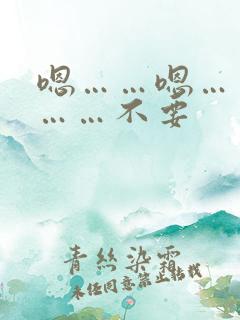 嗯……嗯…
……不要
青丝染霜
未经同意禁止转载